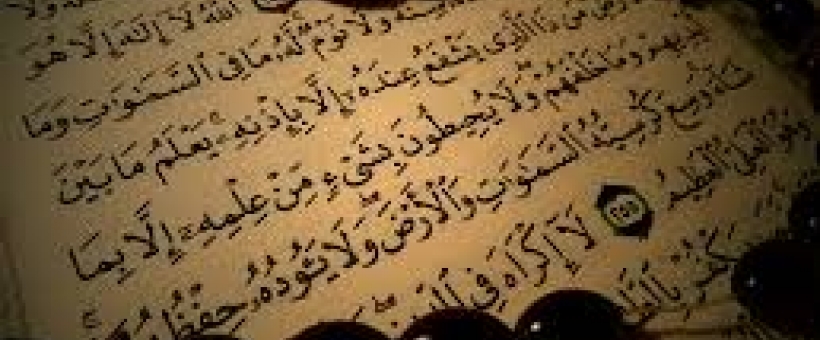 ٱللَّهُ لَآ إِلَٰهَ إِلَّا هُوَ
وَلَا نَوْمٌ لَّهُۥ مَا فِى ٱلسَّمَٰوَٰتِ وَمَا
مَن ذَا ٱلَّذِى يَشْفَعُ عِندَهُۥٓ إِلَّا بِإِذْنِهِۦ يَعْلَمُ مَا بَيْنَ
أَيْدِيهِمْ وَمَا خَلْفَهُمْ وَلَا يُحِيطُونَ بِشَىْءٍ مِّنْ عِلْمِهِۦٓ إِلَّا بِمَا
شَآءَ وَسِعَ كُرْسِيُّهُ ٱلسَّمَٰوَٰتِ وَٱلْأَرْضَ وَلَا يَـُٔودُهُۥ
وَهُوَ ٱلْعَلِىُّ ٱلْعَظِيمُ ٢٥٥ لَآ إِكْرَاهَ فِى